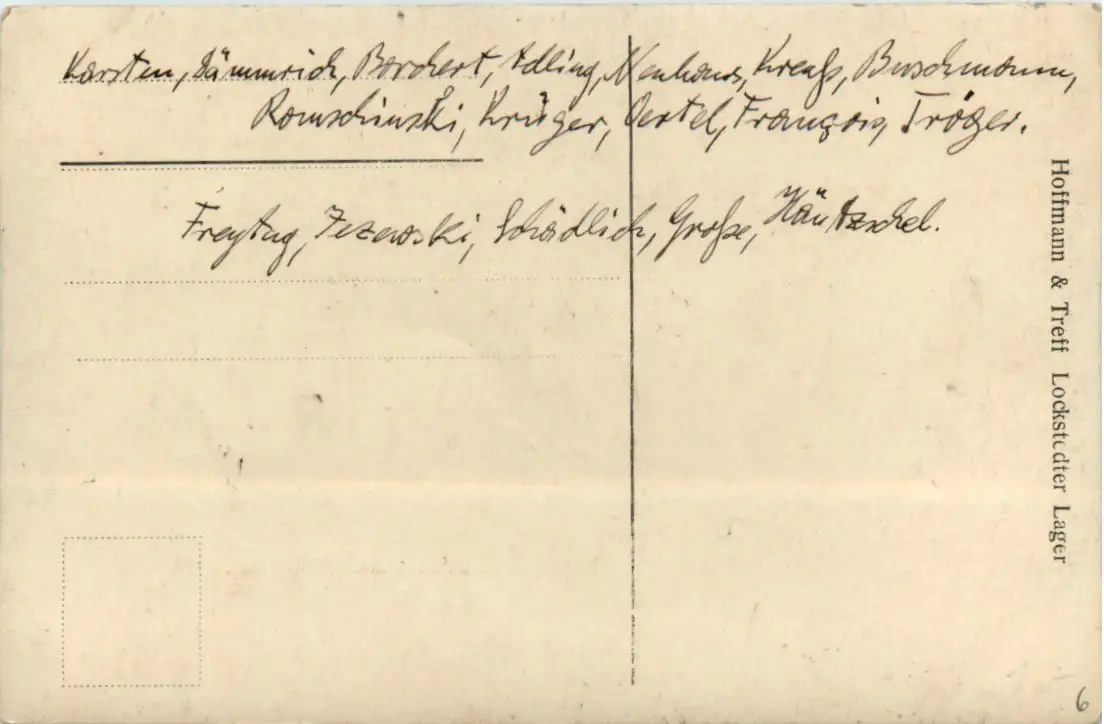 Karsten, Dämmrich, Borchert, Edling, Neuhaus, Kreuß, Buschmann,
Ramschinski, Krüger, Oertel, François, Tröger.
Freytag, Jezewski, Schädlich, Große, Häntzschel.
Hoffmann & Treff Lockstedter Lager
6